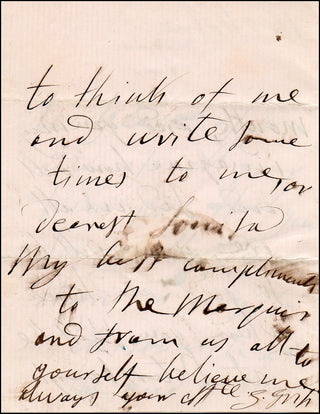 to think of me
and write some
times to me or
dearest
My best compliments
to the Marquis
and from us all to
yourself believe me
always your